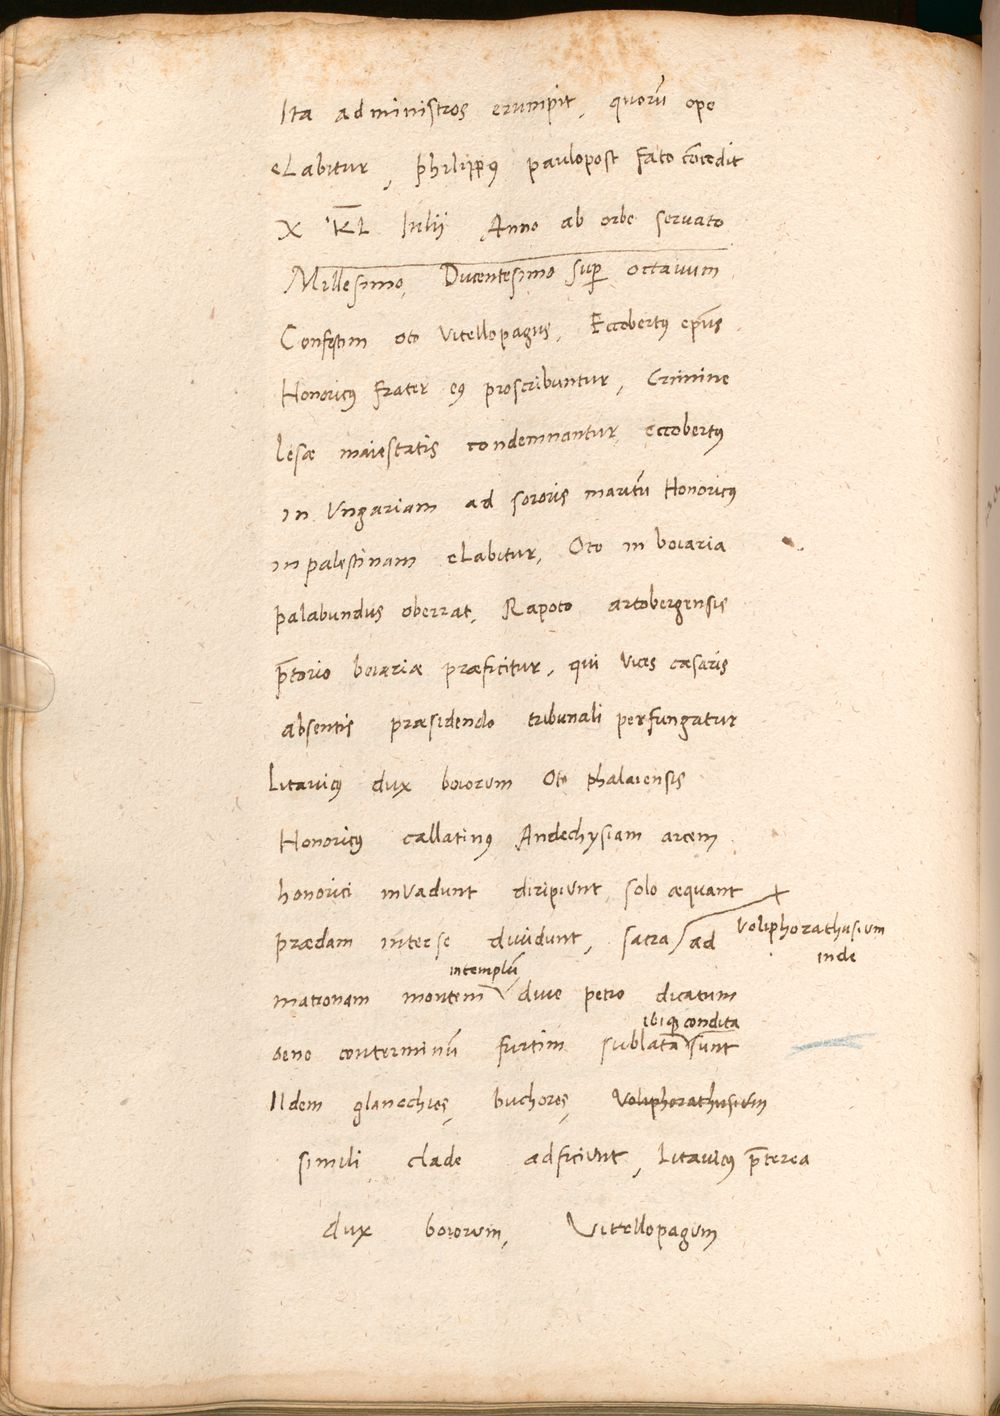 Ita administros erumpit, quorū ope
elabitur, philippꝰ paulopost fato cōcedit
X KL̅ Iulij Anno ab orbe seruato
Millesimo, Ducentesimo sup̱ octauum
Confestim oto Vitellopagus, Eccobertꝰ ep̄us
Honoricꝰ frater eꝰ proscribuntur, Crimine
lesæ maiestatis condemnantur eccobertꝰ
in Vngariam ad sororis maritū Honoricꝰ
in palestinam elabitur, Oto in boiaria
palabundus oberrat, Rapoto artobergensis
p̄torio boiariæ præficitur, qui vices cæsaris
absentis præsidendo tribunali perfungatur
Litauicꝰ dux boiorum Oto phalaiensis
Honoricꝰ callatinꝰ Andechysiam arcem
honorici inuadunt diripiunt, solo æquant
prædam interse diuidunt, sacra ad Voliphorathusium
inde
in templū
matronam montem diuo petro dicatum
ibiq̱ condita
oeno conterminū furtim sublata sunt
Iidem glanechies, buchores, Voliphorathusium
simili clade adficiunt, Litauicꝰ p̄terea
dux boiorum, Vitellopagum